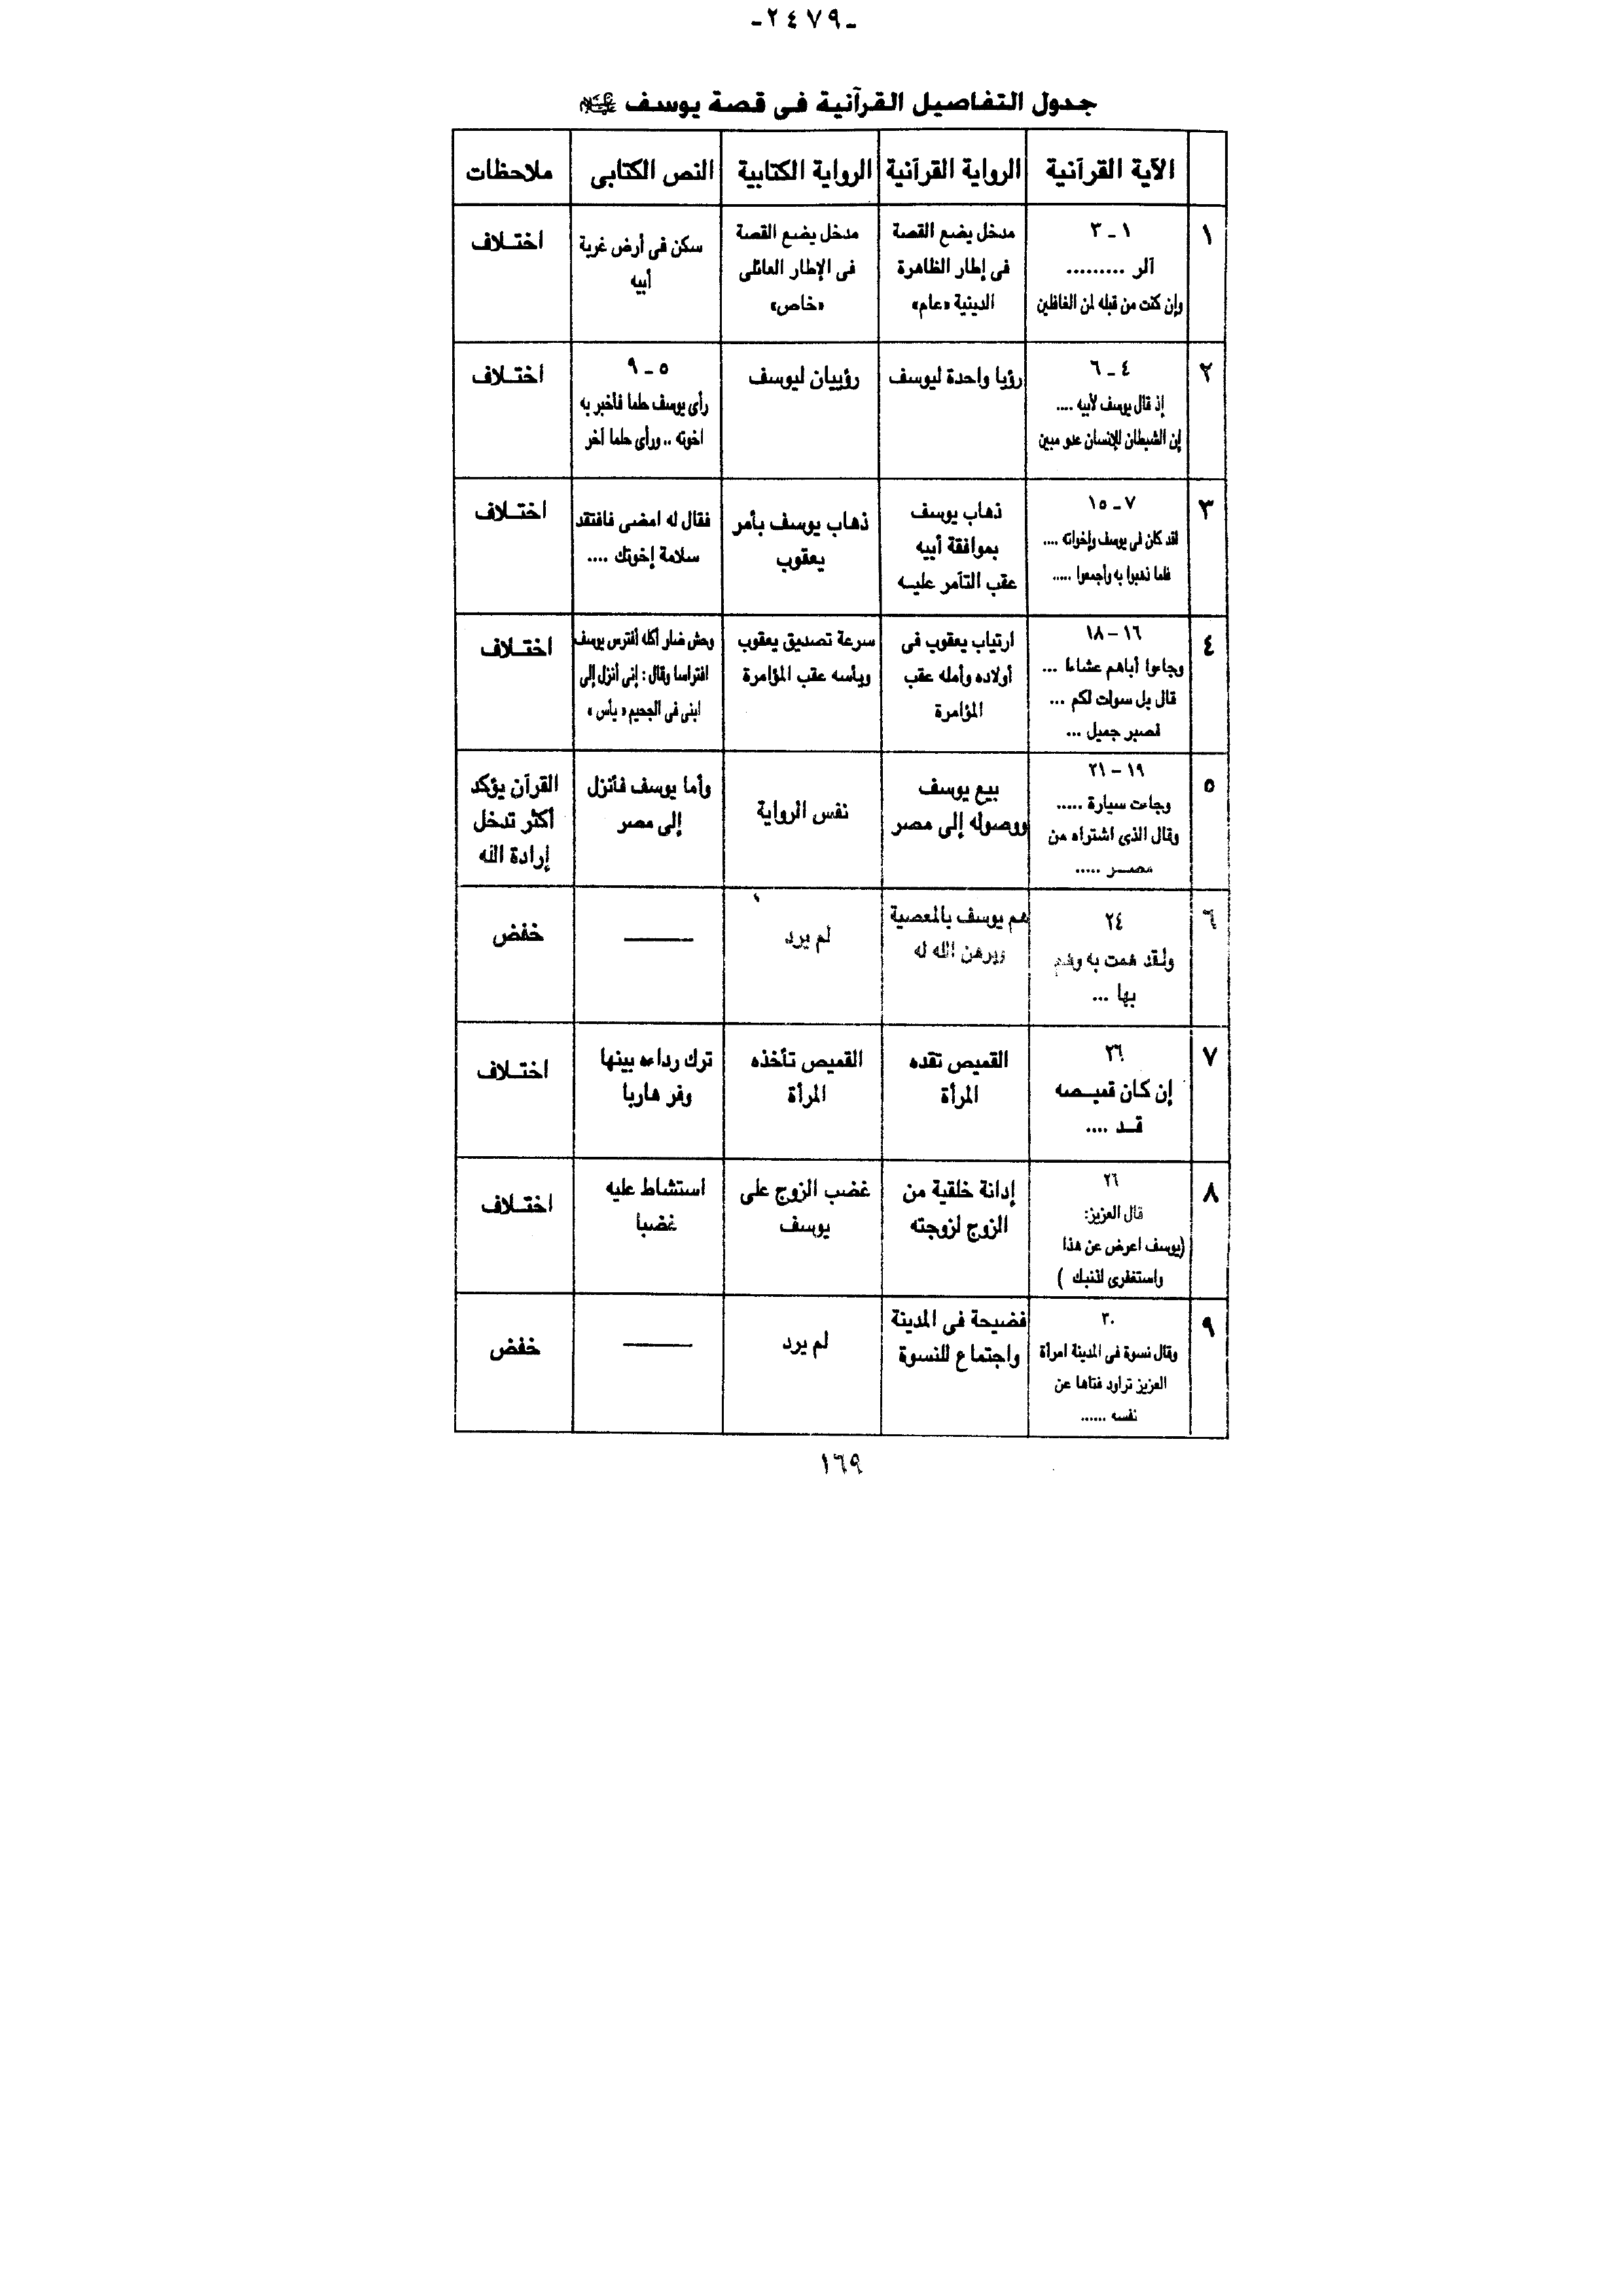 -٢٤٧٩-
جدول التفاصيل القرآنية فى قصة يوسف عليه السلام
الآية القرآنية | الرواية القرآنية | الرواية الكتابية | النص الكتابى | ملاحظات
١
١ ـ ٣
آلر .........
وإن كنت من قبله لمن الغافلين
مدخل يضع القصة
فى إطار الظاهرة
الدينية «عام»
مدخل يضع القصة
فى الإطار العائلى
«خاص»
سكن فى أرض غربة
أبيه
اختـلاف
٢
٤ ـ ٦
إذ قال يوسف لأبيه ....
إن الشيطان للإنسان عدو مبين
رؤيا واحدة ليوسف
رؤييان ليوسف
٥ ـ ٩
رأى يوسف حلما فأخبر به
اخوته .. ورأى حلما آخر
اختـلاف
٣
٧ ـ ١٥
لقد كان فى يوسف وإخواته ....
فلما ذهبوا به وأجمعوا .....
ذهاب يوسف
بموافقة أبيه
عقب التآمر عليـه
ذهاب يوسف بأمر
يعقوب
فقال له امضى فافتقد
سلامة إخوتك ....
اختـلاف
٤
١٦ – ١٨
وجاءوا أباهم عشاءا ...
قال بل سولت لكم ...
فصبر جميل ...
ارتياب يعقوب فى
أولاده وأمله عقب
المؤامرة
سرعة تصديق يعقوب
ويأسه عقب المؤامرة
وحش ضار أكله أفترس يوسف
افتراسا وقال : إنى أنزل إلى
ابنى فى الجحيم « يأس »
اختـلاف
٥
١٩ – ٢١
وجاءت سيارة .....
وقال الذى اشتراه من
مصـــر .....
بيع يوسف
ووصوله إلى مصر
نفس الرواية
وأما يوسف فأنزل
إلى مصر
القرآن يؤكد
أكثر تدخل
إرادة الله
٦
٢٤
ولقد همت به وهم
بها ...
هم يوسف بالمعصية
وبرهن الله له
لم يرد
———
خفض
٧
٢٦
إن كان قميـصه
قـد ....
القميص تقده
المرأة
القميص تأخذه
المرأة
ترك رداءه بينها
وفر هاربا
اختـلاف
٨
٢٦
قال العزيز:
(يوسف اعرض عن هذا
واستغفرى لذنبك )
إدانة خلقية من
الزوج لزوجته
غضب الزوج على
يوسف
استشاط عليه
غضبا
اختـلاف
٩
٣٠
وقال نسوة فى المدينة امرأة
العزيز تراود فتاها عن
نفسه ......
فضيحة فى المدينة
واجتماع للنسوة
لم يرد
———
خفض
١٦٩